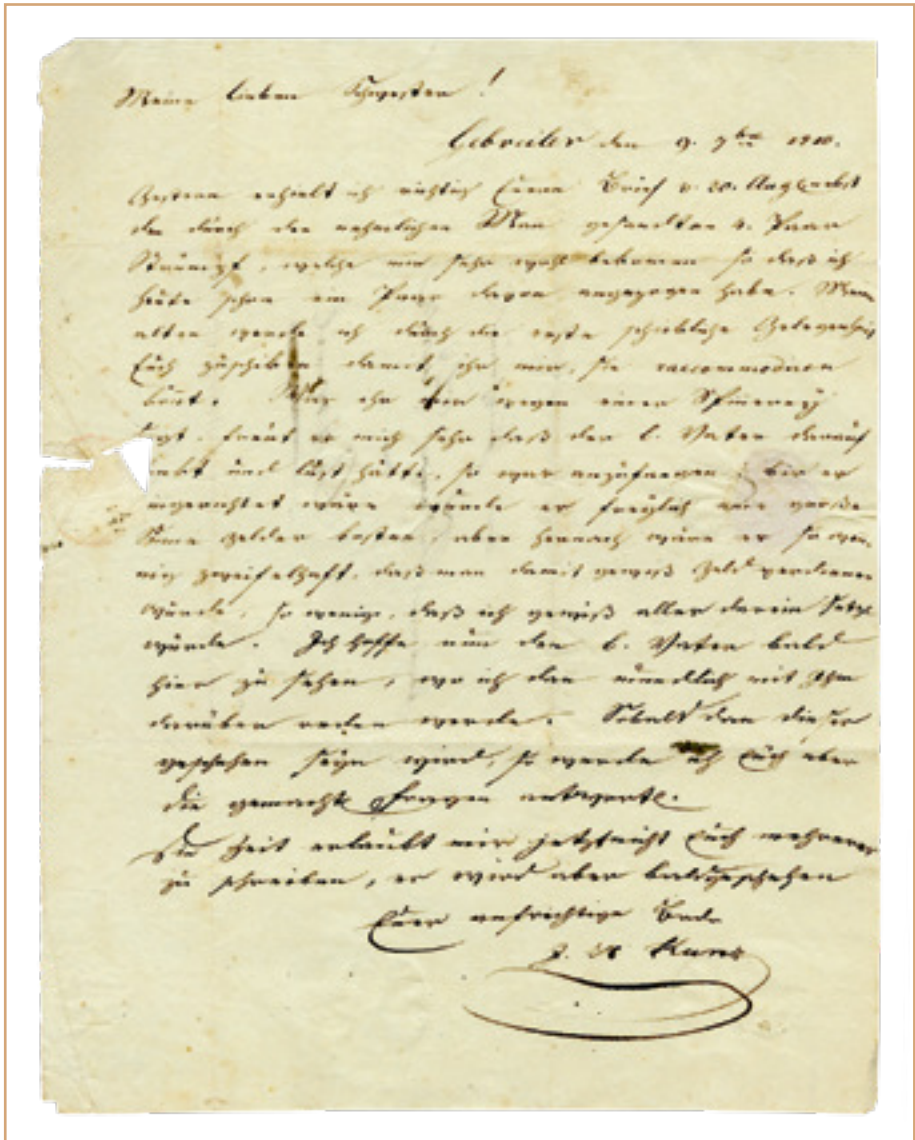 Meine lieben Schwestern!
Gebweiler den 9. 7bre 1810.
Gestern erhielt ich richtig Euern Brief v. 20. Aug nebst
den durch den Man gesandten 4. Paar
Strümpf, welche mir sehr wohl bekamen so daß ich
heüte schon ein Paar davon angezogen habe. Meine
alten werde ich durch die erste schickliche Gelegenheit
Euch zuschiken damit ihr mir sie raccommodiren
könt. Was ihr mir wegen einer Spinnerey
sagt, freüt es mich sehr daß der l. Vater darauf
denkt und lust hätte, so was anzufangen; bis es
eingerichtet wäre würde es freylich eine große
Sume Gelder kosten, aber hernach wäre es so we-
nig zweifelhaft, daß man damit gewiß Geld verdienen
würde, so wenig, daß ich gewiß alles darein setzen
würde. Ich hoffe nun den l. Vater bald
hier zu sehen, wo ich dan mündlich mit Ihm
darüber reden werde. Sobald dan dieses
geschehen seyn wird, so werde ich Euch über
die gemachte Fragen antworte.
Die Zeit erlaubt mir jetzt nicht Euch mehreres
zu schreiben, es wird aber bald geschehen
Euer aufrichtige Brude
J. H Kunz